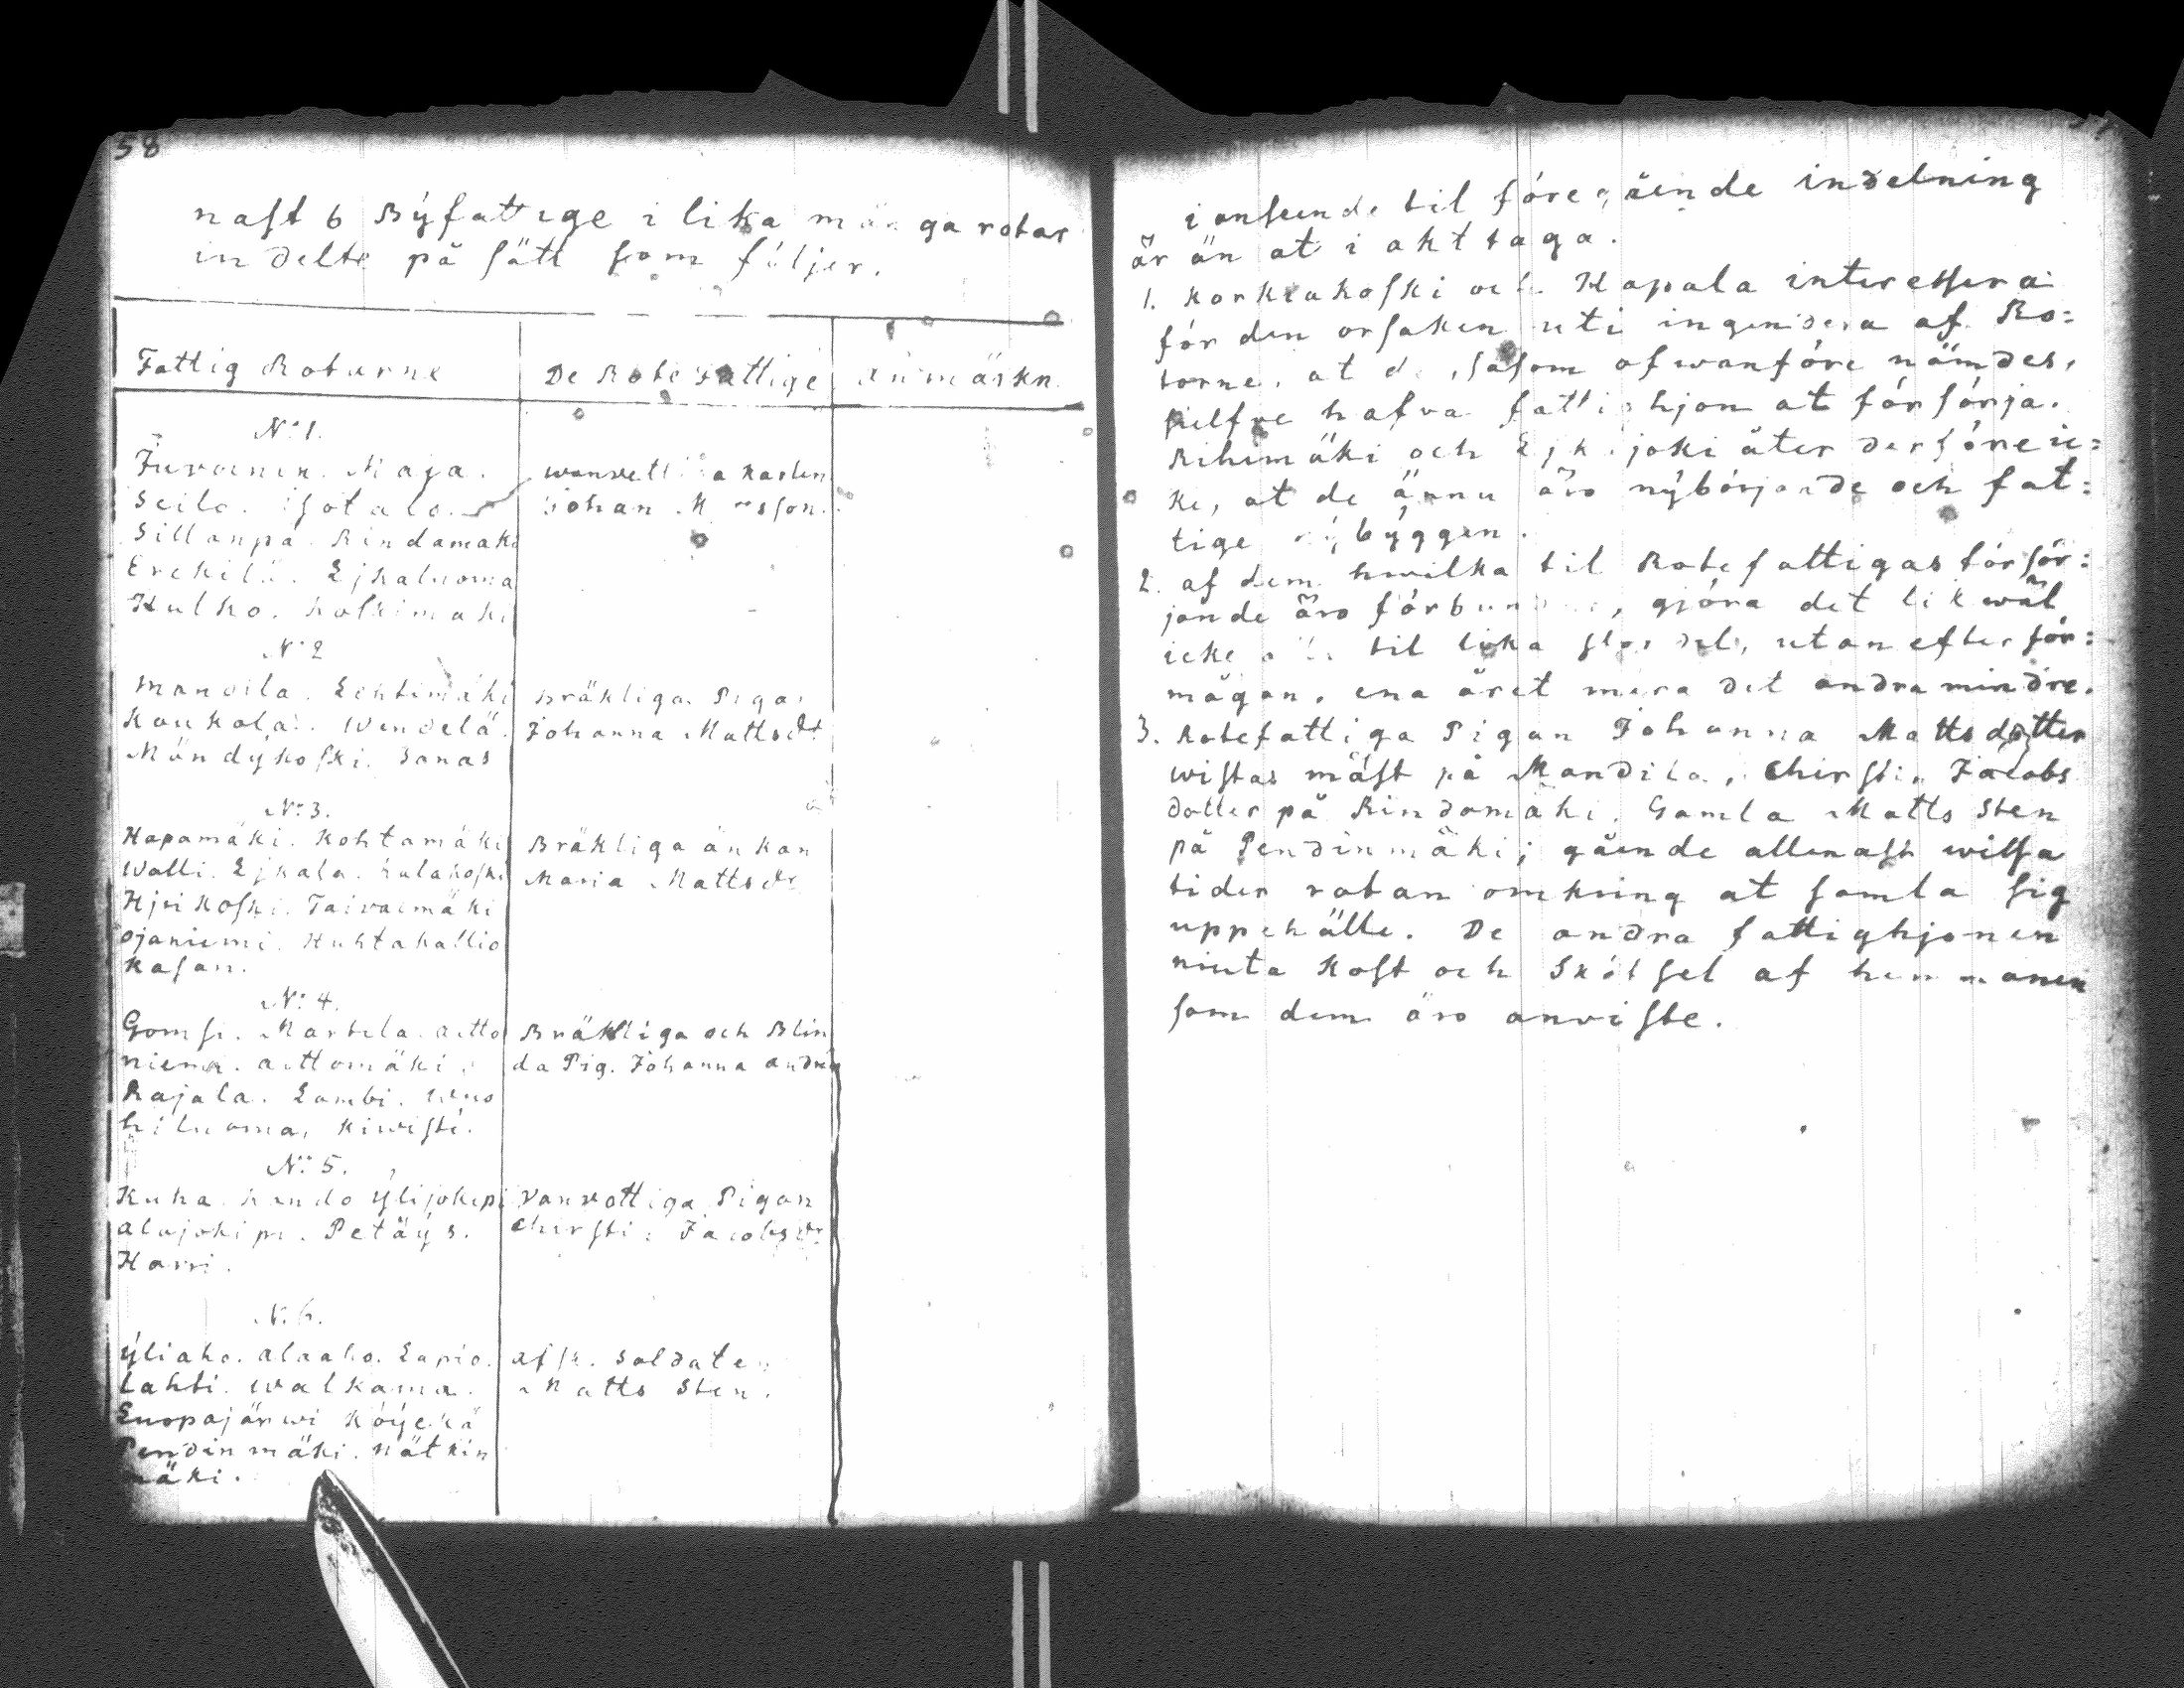 58
nast 6 Byfattige i lika många rotar
indelte på sätt som följer.
Fattig Rotarne
De Rote Fattige
Anmärkn.
N:1.
Juvonen. Maja.
Seilo. Isotalo.
Sillanpä. Rindamäki
Erckilä. Ejkaluoma
Hulko. Koskimäki
wanvettiga Karlen
Johan M
N:2
Mandila. Lehtimäki
Koukola. Wendelä.
Mändykoski. Sanas
Bräkliga Pigan
Johanna Mattsdr
N:3.
Hapamäki. Kohtamäki
Walli. Ejkala. Kulakoski
Hjrikoski. Taivalmäki
Ojaniemi. Huhtakallio
Kasan.
Bräkliga änkan
Maria Mattsdr
N:4.
Gomsi. Martila. Autto
niemi. Auttomäki.
Rajala. Lambi. Wuo
hiluoma, Kiwisti.
Bräkliga och Blin
da Pig. Johanna Andr
N:5.
Kuha. Kando Ylijokipi
Alajokipi. Petäys.
Harri.
Vanvettiga Pigan
Chirsti: Jacobsdr
N:6.
Yliaho. Alaaho. Lapio.
Lahti. Walkama.
Euopajärwi Köykkä
Pendinmäki. Nätkin
mäki.
Afsk. Soldaten
Matts Sten.
i anseende til föregående indelning
är än at i akttaga.
1. Korkiakoski och Kapala interessera
för den orsaken uti ingendera af Ro=
tarne, at de, såsom ofwanföre nämdes,
sielfwe hafva fattighjon at försörja.
Rihimäki och joki åter derföre ic=
ke, at de ännu äro nybörjande och fat=
tige nybyggen.
2. af dem hwilka til Rotefattigas försör=
jande äro förbundne, gjöra det likwäl
icke alla til lika stor del, utan efter för=
mågan, ena året mera det andra mindre.
3. Rotefattiga Pigan Johanna Mattsdotter
wistas mäst på Mandila, Chirsti. Jacobs
dotter på Rindamäki. Gamla Matts Sten
på Pendinmäki; gående allenast wissa
tider rotan omkring at samla sig
uppehälle. De andra fattighjonen
niuta Kost och Skötsel af hemmanen
som dem äro anviste.